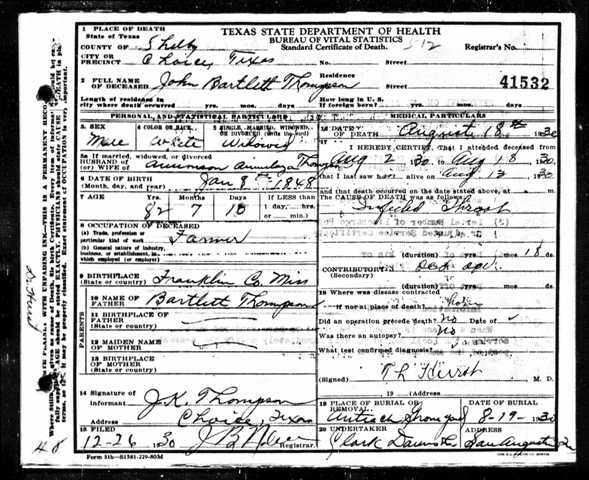 TEXAS STATE DEPARTMENT OF HEALTH
BUREAU OF VITAL STATISTICS
Standard Certificate of Death.
1 PLACE OF DEATH
State of Texas
COUNTY OF Shelby
Registrar's No.
CITY OR
PRECINCT Choice, Texas No. Street
2 FULL NAME
OF DECEASED John Bartlett Thompson
Residence
No. Street
41532
Length of residence in
city where death occurred yrs. mos. days.
How long in U. S.
PERSONAL AND STATISTICAL PARTICULARS
3 SEX
Male
4 COLOR OR RACE
White
5 SINGLE, MARRIED, WIDOWED,
DIVORCED (write the word)
Widowed
5a If married, widowed, or divorced
HUSBAND OF
WIFE OF
Thompson
6 DATE OF BIRTH
(Month, day, and year) Jan 8th 1848
7 AGE Years Months Days
82 7 10
If LESS than
1 day, hrs.
or min.
8 OCCUPATION OF DECEASED
(a) Trade, profession or
particular kind of work Farmer
(b) General nature of industry,
business, or establishment, in
which employed (or employer)
9 BIRTHPLACE
(State or country) Franklin Co. Miss
PARENTS
10 NAME OF
FATHER Bartlett Thompson
11 BIRTHPLACE OF
FATHER
(State or country)
12 MAIDEN NAME
OF MOTHER
13 BIRTHPLACE OF
MOTHER
(State or country)
14 Signature of
Informant J.K. Thompson
Address Choice, Texas
15 FILED
12-26 30
Registrar.
Form 11b—S1581-229-80M
MEDICAL PARTICULARS
16 DATE
OF DEATH August 18th 1930
17 I HEREBY CERTIFY, That I attended deceased
from Aug 2 30 to Aug 18 1930
that I last saw h alive on Aug 13 1930
and that death occurred on the date stated above, at m.
The CAUSE OF DEATH was as follows:
Infected Throat
(duration) yrs. mos. 18 ds.
CONTRIBUTORY
(Secondary)
(duration) yrs. mos. ds.
18 Where was disease contracted
if not at place of death?
Did an operation precede death? No Date of
Was there an autopsy? No
What test confirmed diagnosis?
(Signed) M. D.
, 19 (Address)
19 PLACE OF BURIAL OR
REMOVAL
Antioch
DATE OF BURIAL
8-19-30
20 UNDERTAKER
Clark
ADDRESS
San Augustine
48